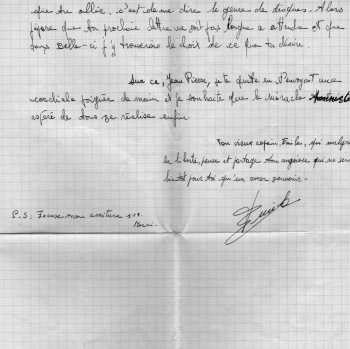 que tu allée, c'est à dire le genre de disques. Alors
j'espère que ta prochaine lettre ne soit pas longue à attendre et que
dans celle-ci j'y trouverai le choix de ce que tu désire.
Sur ce, Jean Pierre, je te quitte en t'envoyant une
cordiale poignée de main et je souhaite que le miracle
espéré de tous se réalise enfin
Ton vieux copain, Emile, qui malgré
la liberté, pense et partage ton angoisse qui ne sera
bientôt pour toi qu'un mauvais souvenir.
P.S. Excuse mon écriture s.v.p.
Merci.